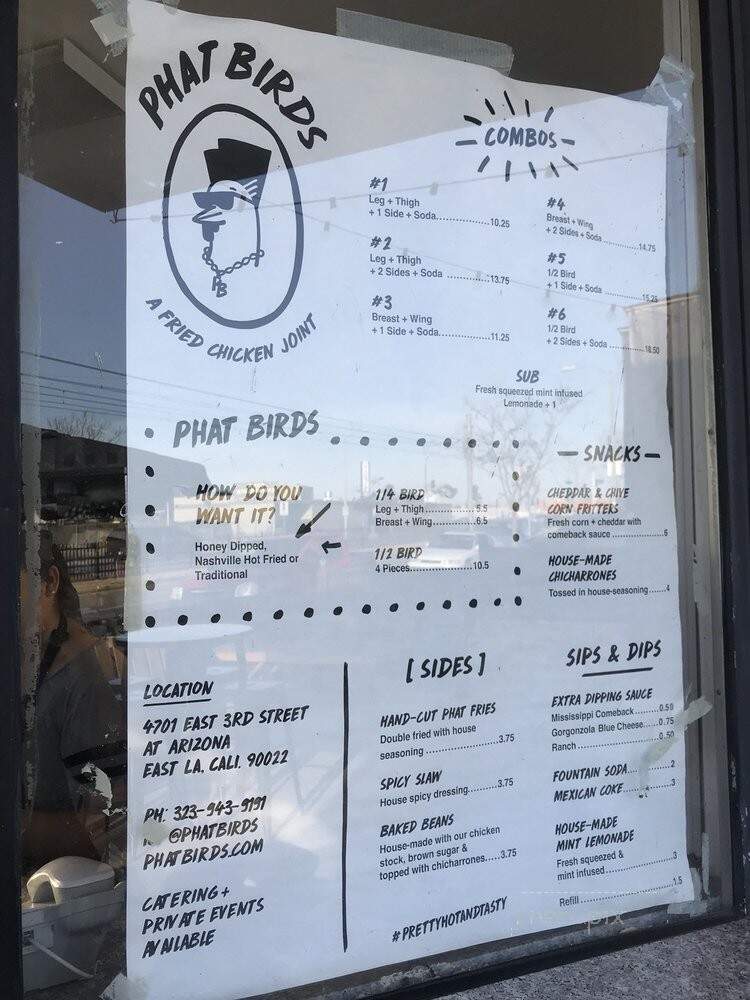 PHAT BIRDS
PB
A FRIED CHICKEN JOINT
COMBOS
#1
Leg + Thigh
+ 1 Side + Soda......................10.25
#2
Leg + Thigh
+ 2 Sides + Soda ..............13.75
#3
Breast + Wing
+ 1 Side + Soda......................11.25
#4
Breast + Wing
+ 2 Sides + Soda ..............14.75
#5
1/2 Bird
+ 1 Side + Soda ................15.25
#6
1/2 Bird
+ 2 Sides + Soda ..............18.50
SUB
Fresh squeezed mint infused
Lemonade + 1
PHAT BIRDS
HOW DO YOU
WANT IT?
Honey Dipped,
Nashville Hot Fried or
Traditional
1/4 BIRD
Leg + Thigh................5.5
Breast + Wing..............6.5
1/2 BIRD
4 Pieces......................10.5
SNACKS
CHEDDAR & CHIVE
CORN FRITTERS
Fresh corn + cheddar with
comeback sauce ....................6
HOUSE-MADE
CHICHARRONES
Tossed in house-seasoning......4
LOCATION
4701 EAST 3RD STREET
AT ARIZONA
EAST LA, CALI. 90022
PH: 323-943-9191
@PHATBIRDS
PHATBIRDS.COM
CATERING +
PRIVATE EVENTS
AVAILABLE
[SIDES]
HAND-CUT PHAT FRIES
Double fried with house
seasoning ..........................3.75
SPICY SLAW
House spicy dressing..........3.75
BAKED BEANS
House-made with our chicken
stock, brown sugar &
topped with chicharrones.....3.75
#PRETTYHOTANDTASTY
SIPS & DIPS
EXTRA DIPPING SAUCE
Mississippi Comeback........0.50
Gorgonzola Blue Cheese.....0.75
Ranch ..............................0.50
FOUNTAIN SODA.............2
MEXICAN COKE...............3
HOUSE-MADE
MINT LEMONADE
Fresh squeezed &
mint infused........................3
Refill ................................1.5